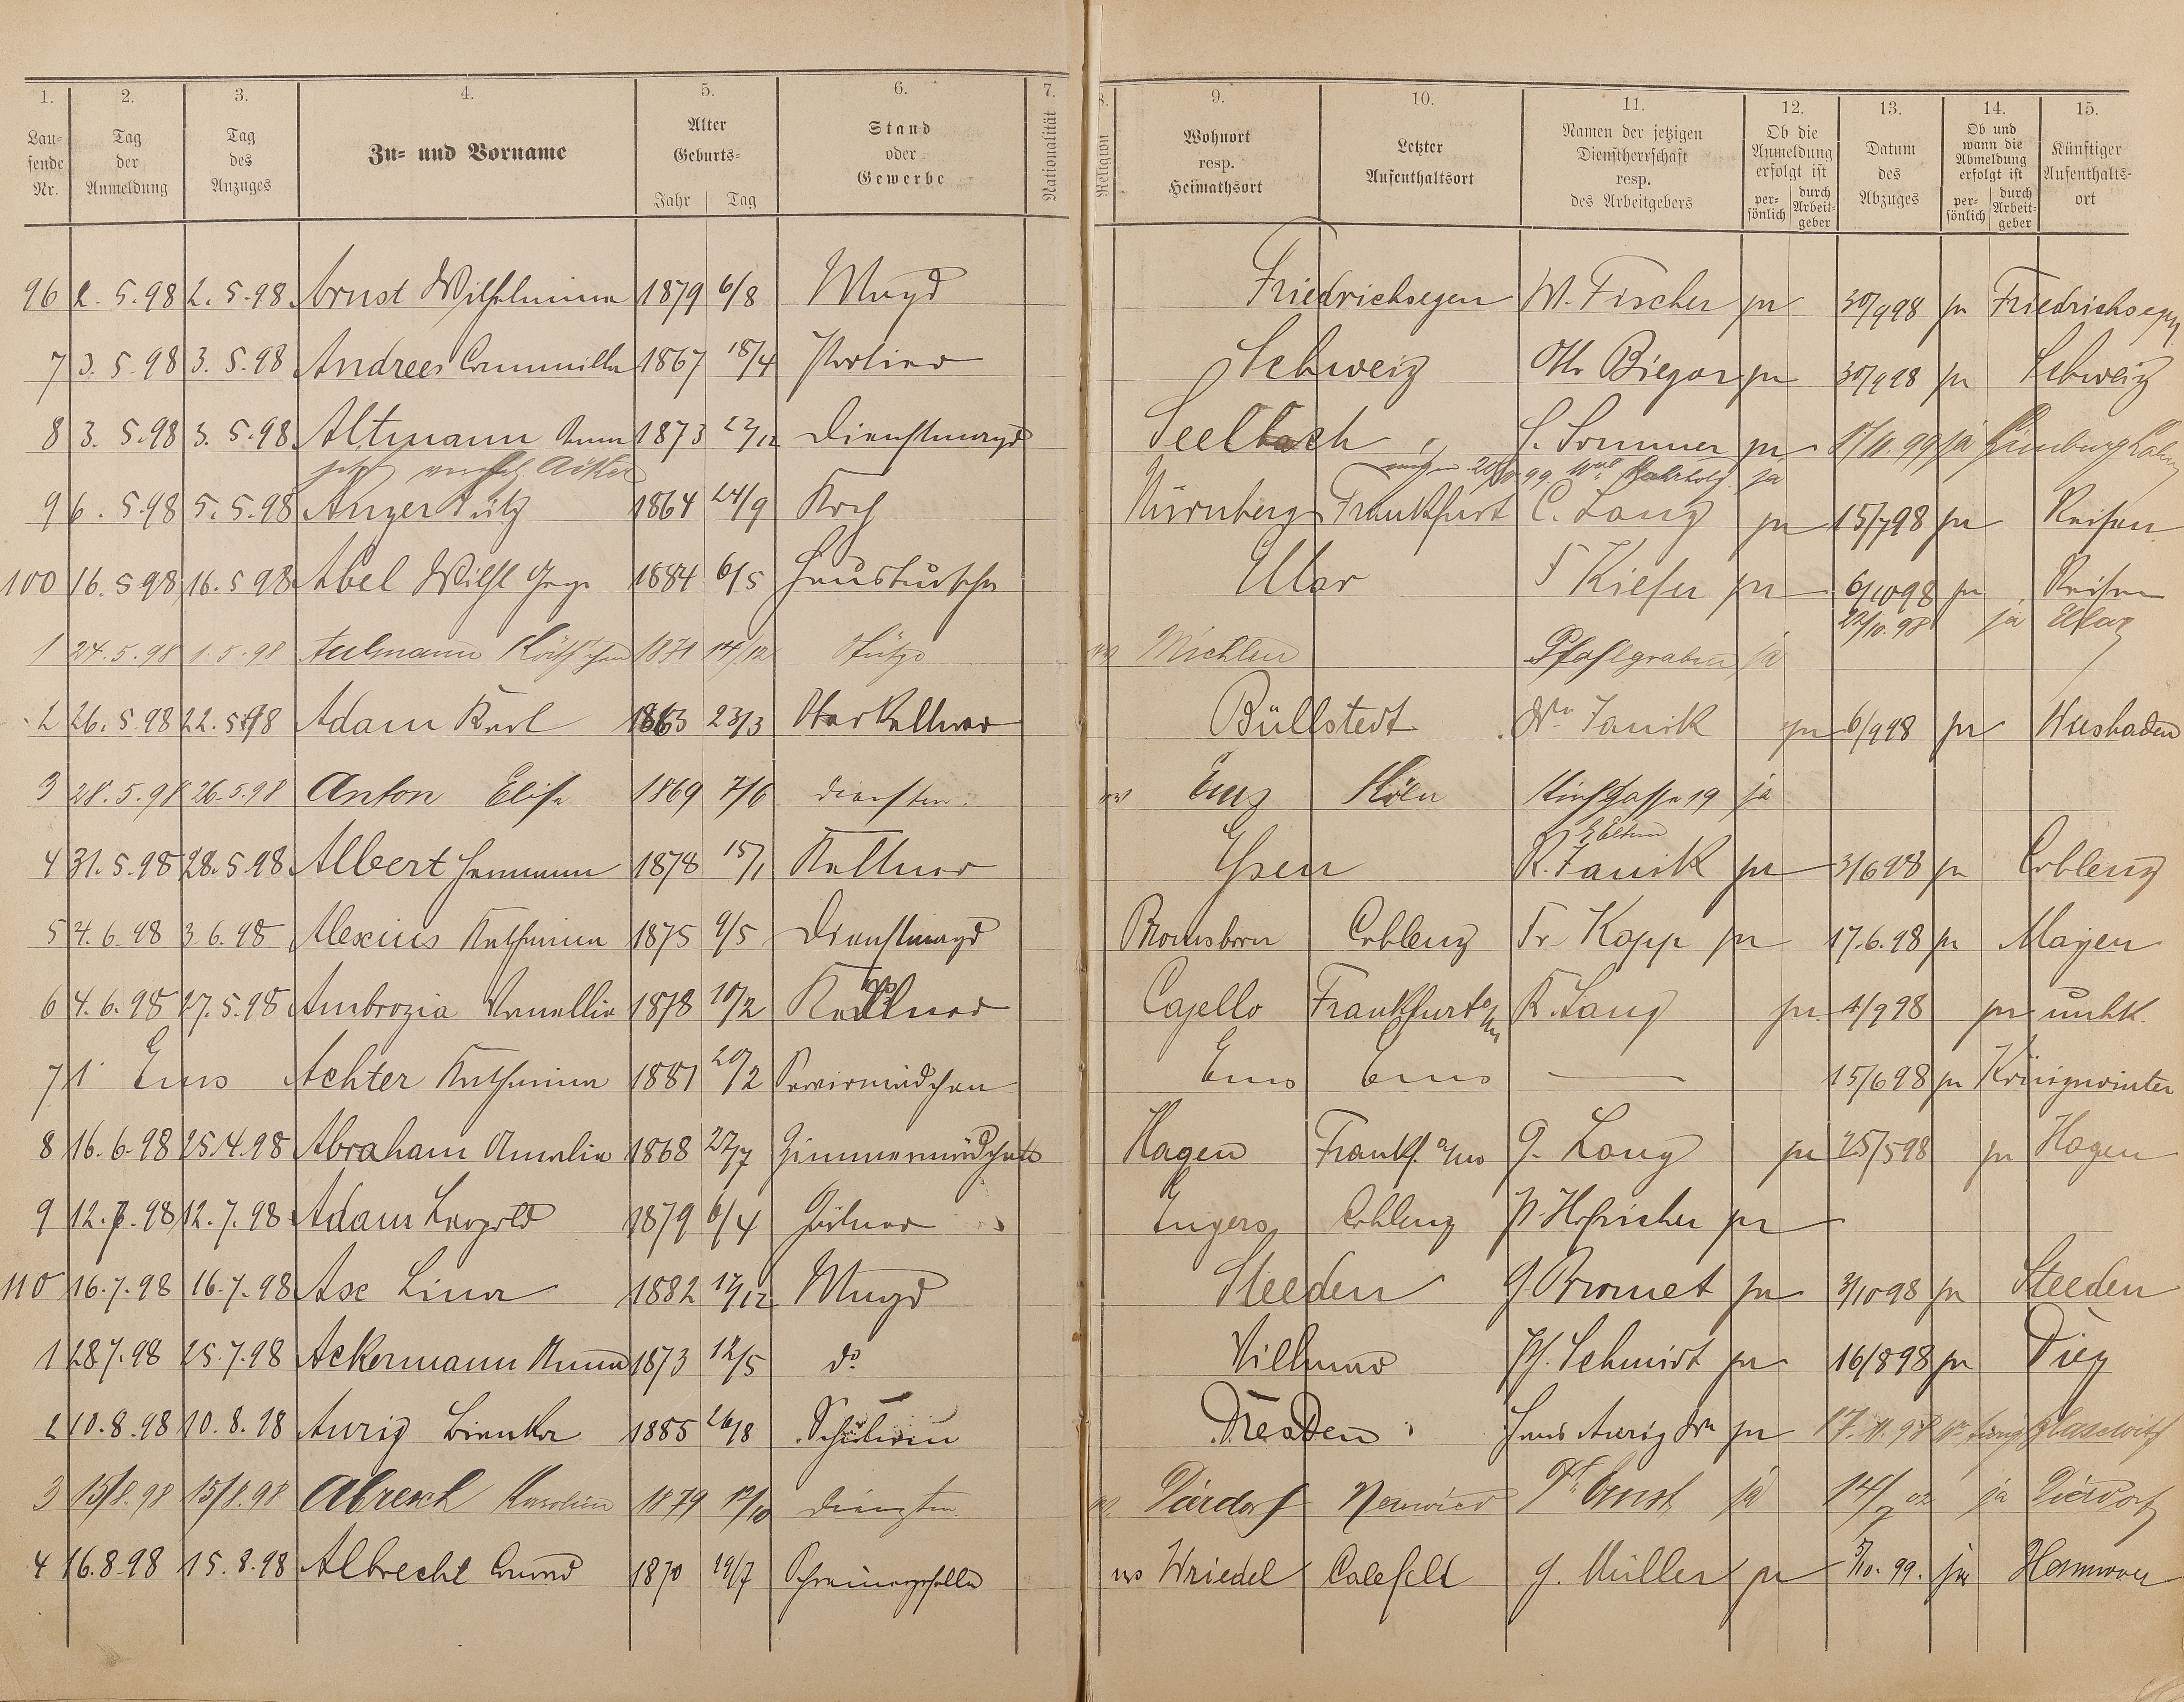 1. 2. 3. 4. 5. 6. 7. 8. 9. 10. 11. 12. 13. 14. 15.
Lau-
fende
Nr.
Tag
der
Anmeldung
Tag
des
Anzuges
Zu- und Vorname
Alter
Geburts-
Jahr Tag
Stand
oder
Gewerbe
Nationalität
Religion
Wohnort
resp.
Heimathsort
Letzter
Aufenthaltsort
Namen der jetzigen
Dienstherrschaft
resp.
des Arbeitgebers
Ob die
Anmeldung
erfolgt ist
per-
sönlich
durch
Arbeit-
geber
Datum
des
Abzuges
Ob und
wann die
Abmeldung
erfolgt ist
per-
sönlich
durch
Arbeit-
geber
Künftiger
Aufenthalts-
ort
96 2. 5. 98 2. 5. 98 Arnst Wilhelmina 1879 6/8 Magd Friedrichsegen W. Fischer ja 30/9 98 ja Friedrichsegen
7 3. 5. 98 3. 5. 98 Andrees 1867 18/4 Portier Schweiz Biegar ja 30/9 98 ja Schweiz
8 3. 5. 98 3. 5. 98 Altmann Anna 1873 22/12 Dienstmagd Seelbach S. Sommer ja 17/11. 99 ja Limburg Lahn
jetzt
9 6. 5. 98 5. 5. 98 Anger Fritz 1864 24/9 Koch Nürnberg Frankfurt C. Lang ja 15/7 98 ja Reisen
100 16. 5 98 16. 5 98 Abel Wilh. 1884 6/5 Hausbursche Ular F Kiefer ja 6/10 98 ja Reisen
22/10. 98 ja
1 24. 5. 98 1. 5. 98 Aulmann Käthchen 1871 14/12 Stütze Miehlen Pfahlgraben ja
2 26. 5. 98 22. 5. 98 Adam Karl 1863 23/3 Oberkellner Büllstedt Janik ja 6/9 98 ja Wiesbaden
3 28. 5. 98 26. 5. 98 Anton Elise 1869 7/6 Dienstm. Ems Köln Kirchgasse 19 ja
Eltern
4 31. 5. 98 28. 5. 98 Albert Hermann 1878 15/1 Kellner R. Janik ja 3/6 98 ja Coblenz
5 4. 6. 98 3. 6. 98 Alexius Katharina 1875 9/5 Dienstmagd Coblenz Fr Kopp ja 17. 6. 98 ja Mayen
6 4. 6. 98 27. 5. 98 Ambrozia 1878 10/2 Kellner Cajello Frankfurt a/M R. Lang ja 4/9 98 ja unbk.
7 1 Ems Achter Katharina 1881 20/2 Servirmädchen Ems Ems — 15/6 98 ja Königswinter
8 16. 6. 98 25. 4. 98 Abraham Amalia 1868 22/7 Zimmermädchen Hagen Frankf. a/M G. Lang ja 25/5 98 ja Hagen
9 12. 7. 98 12. 7. 98 Adam Leopold 1879 6/4 Engers Coblenz P. Hofricher ja
110 16. 7. 98 16. 7. 98 Axe Lina 1882 17/12 Magd Steeden ja 3/10 98 ja Steeden
1 28 7. 98 25. 7. 98 Ackermann Anna 1873 12/5 do Villmar Ph. Schmidt ja 16/8 98 ja Diez
2 10. 8. 98 10. 8. 98 Aurig Bianka 1885 26/8 Schülerin Dresden Aurig ja 17. 11. 98
3 15/8. 98 15/8. 98 Abresch Karoline 1879 Dienstm. Dierdorf Neuwied Ernst ja 14/7 02 ja Dierdorf
4 16. 8. 98 15. 8. 98 Albrecht Conrad 1870 19/7 Schreinergeselle Wriedel Calefeld G. Müller ja 5/10. 99. ja Hannover